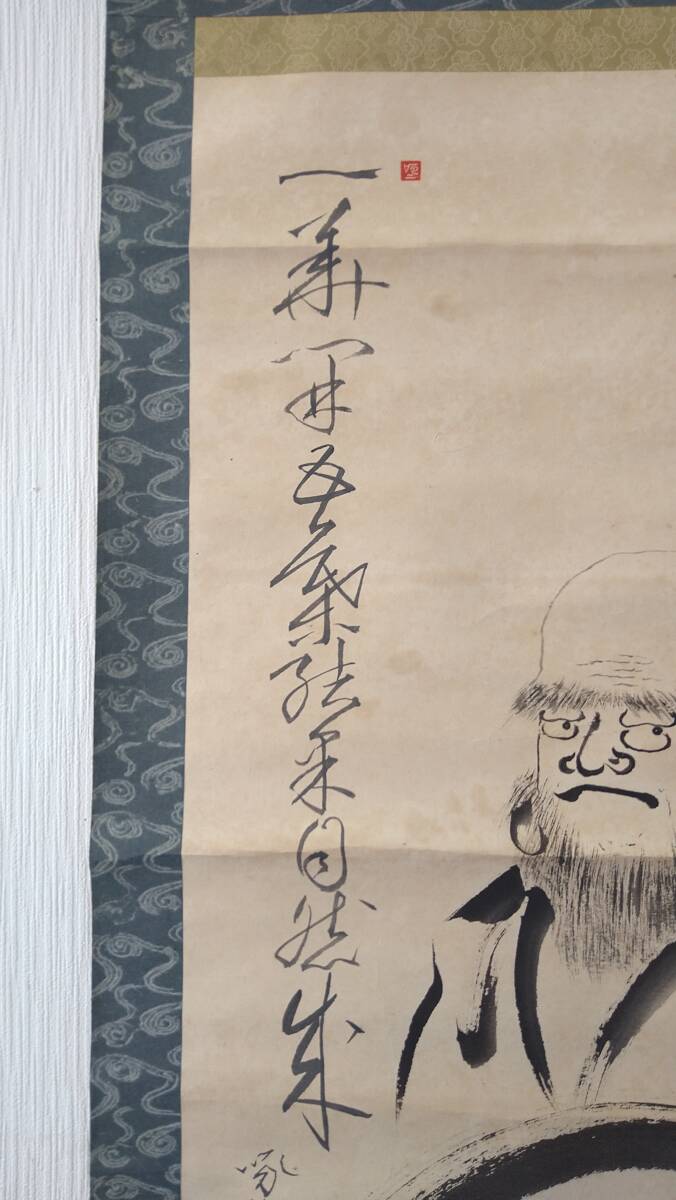 一華開五葉結果自然成